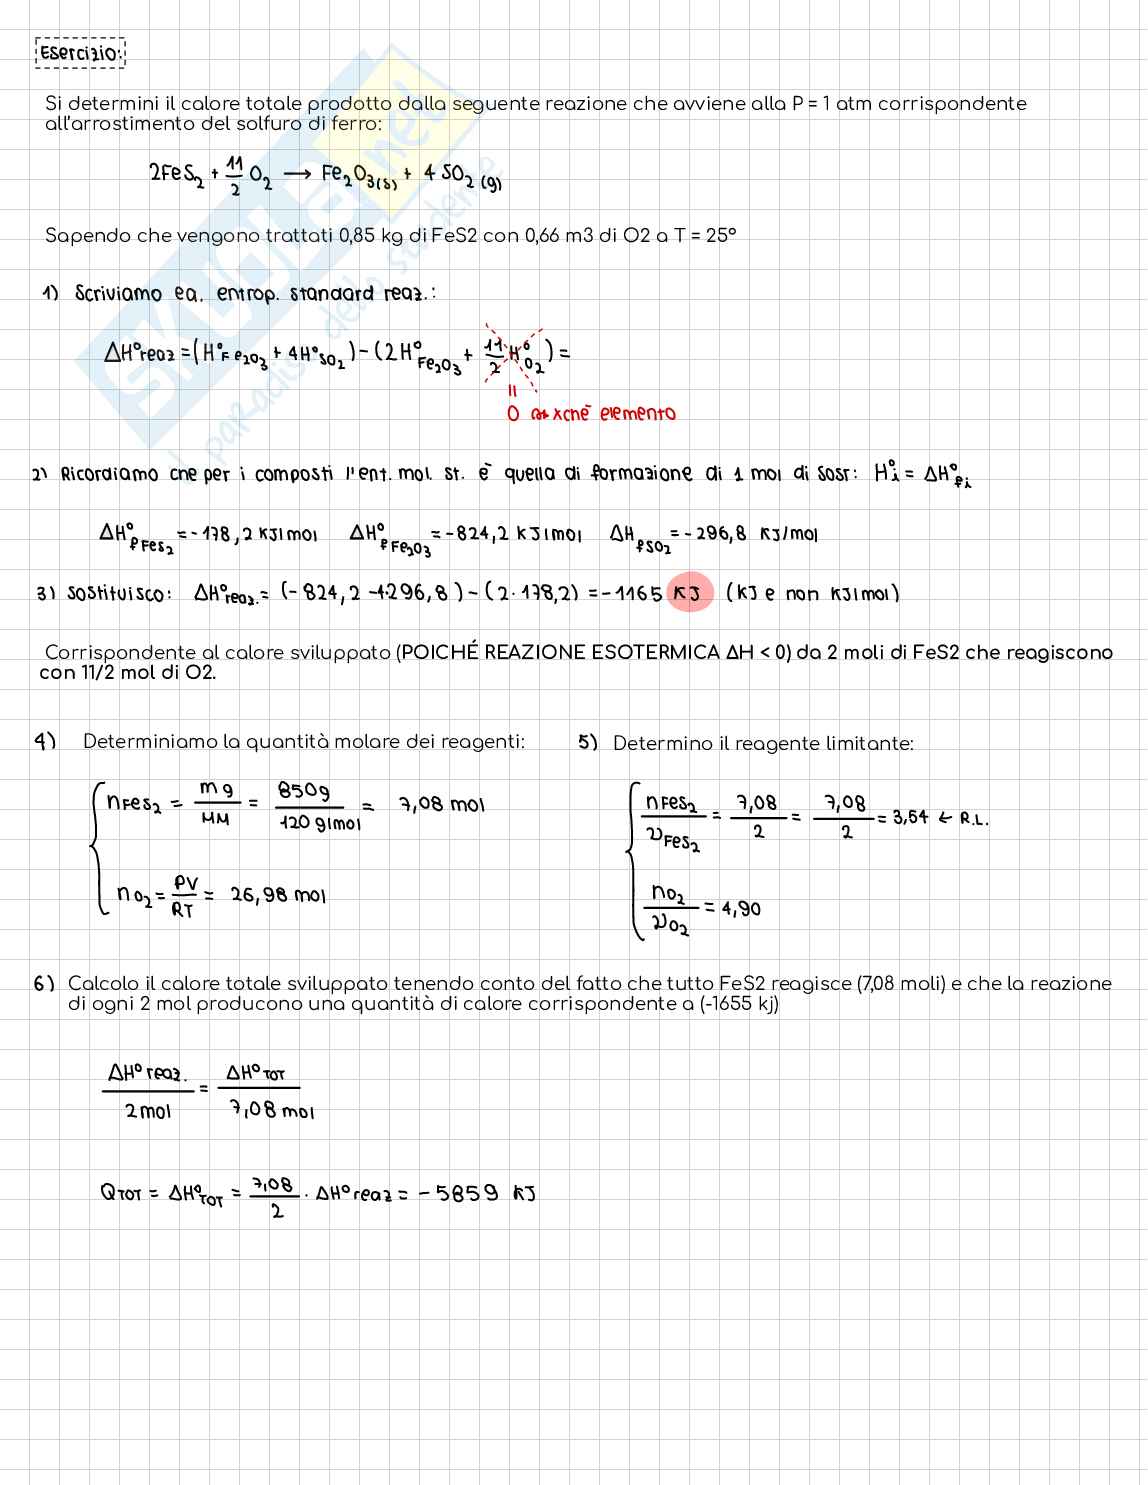 Esercizio:
Si determini il calore totale prodotto dalla seguente reazione che avviene alla P = 1 atm corrispondente
all'arrostimento del solfuro di ferro:
2FeS₂ + 11/2 O₂ → Fe₂O₃(s) + 4 SO₂ (g)
Sapendo che vengono trattati 0,85 kg di FeS2 con 0,66 m3 di O2 a T = 25°
1) Scriviamo eq. entrop. standard reaz.:
ΔH°reaz = (H°Fe₂O₃ + 4H°SO₂) - (2H°Fe₂O₃ + 11/2 H°O₂) =
=
0 xchè elemento
2) Ricordiamo che per i composti l'ent. mol. st. è quella di formazione di 1 mol di sost: H°i = ΔH°fi
ΔH°f FeS₂ = -178,2 KJ/mol ΔH°f Fe₂O₃ = -824,2 KJ/mol ΔHf SO₂ = -296,8 KJ/mol
3) Sostituisco: ΔH°reaz. = (-824,2 -4·296,8) - (2·178,2) = -1165 KJ (KJ e non KJ/mol)
Corrispondente al calore sviluppato (POICHÉ REAZIONE ESOTERMICA ΔH < 0) da 2 moli di FeS2 che reagiscono
con 11/2 mol di O2.
4) Determiniamo la quantità molare dei reagenti: 5) Determino il reagente limitante:
nFeS₂ = mg/MM = 850g/120 g/mol = 7,08 mol
nFeS₂/νFeS₂ = 7,08/2 = 7,08/2 = 3,54 ← R.L.
nO₂ = PV/RT = 26,98 mol
nO₂/νO₂ = 4,90
6) Calcolo il calore totale sviluppato tenendo conto del fatto che tutto FeS2 reagisce (7,08 moli) e che la reazione
di ogni 2 mol producono una quantità di calore corrispondente a (-1655 kj)
ΔH°reaz./2mol = ΔH°TOT/7,08 mol
QTOT = ΔH°TOT = 7,08/2 · ΔH°reaz = -5859 KJ
SKUOLA.net
il paradiso dello studente